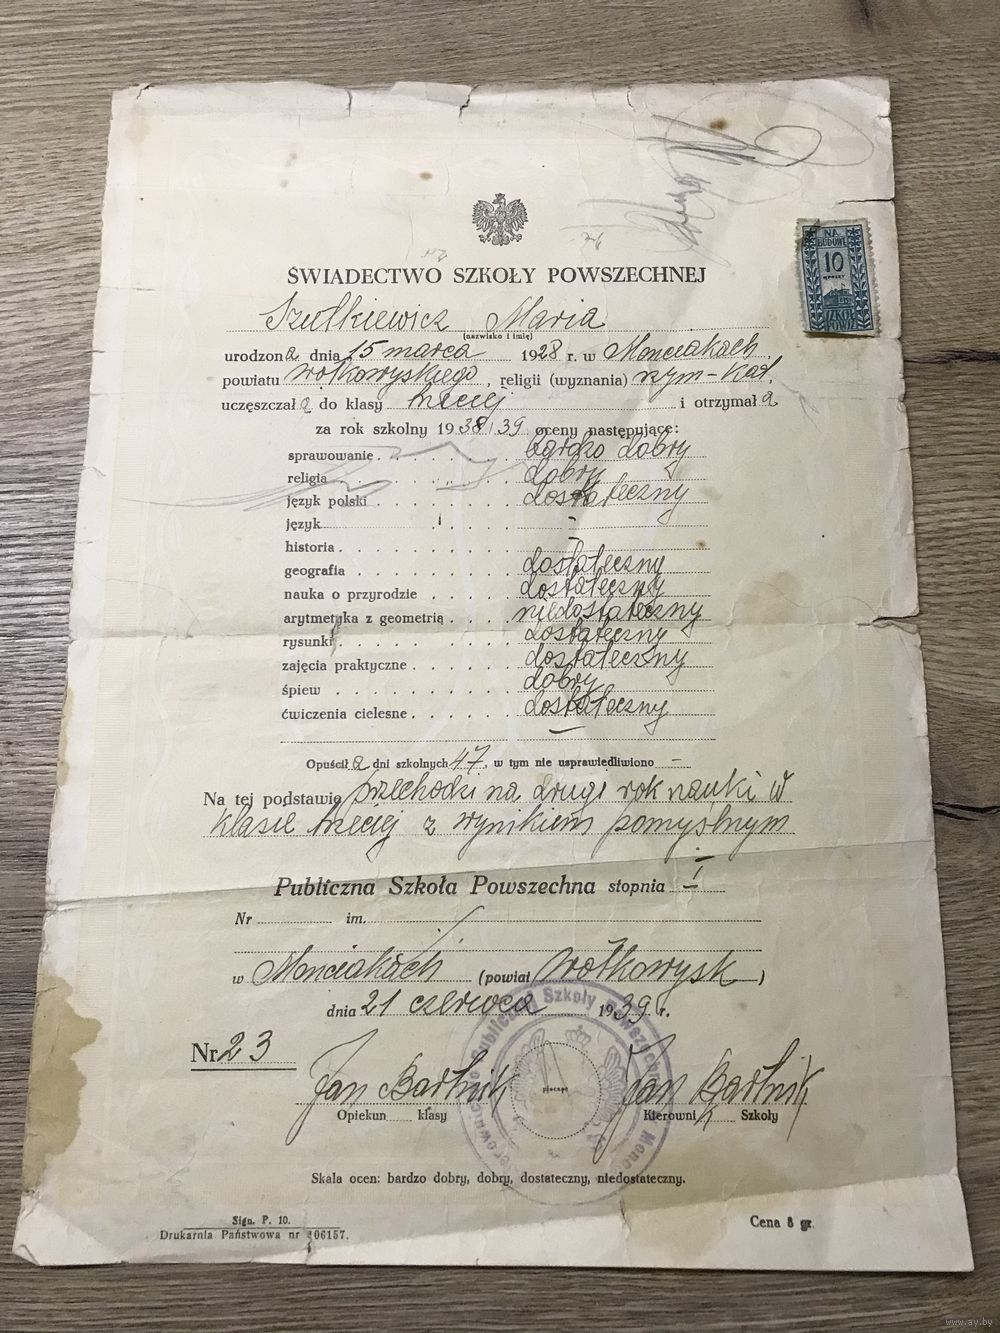 NA
BUDOWĘ
10
GROSZY
SZKÓŁ
POWSZ.
ŚWIADECTWO SZKOŁY POWSZECHNEJ
Szulkiewicz Maria
(nazwisko i imię)
urodzona dnia 15 marca 1928 r. w Monciakach,
powiatu wołkowyskiego, religii (wyznania) rzym-kat.
uczęszczała do klasy trzeciej i otrzymała
za rok szkolny 1938/39 oceny następujące:
sprawowanie bardzo dobry
religia dobry
język polski dostateczny
język -
historia -
geografia dostateczny
nauka o przyrodzie dostateczny
arytmetyka z geometrią niedostateczny
rysunki dostateczny
zajęcia praktyczne dostateczny
śpiew dobry
ćwiczenia cielesne dostateczny
Opuściła dni szkolnych 47, w tym nie usprawiedliwiono -
Na tej podstawie przechodzi na drugi rok nauki w
klasie trzeciej z wynikiem pomyślnym
Publiczna Szkoła Powszechna stopnia I
Nr im.
w Monciakach (powiat Wołkowysk)
dnia 21 czerwca 1939 r.
Nr 23
Jan Bartnik Jan Bartnik
Opiekun klasy Kierownik Szkoły
pieczęć
Skala ocen: bardzo dobry, dobry, dostateczny, niedostateczny.
Sign. P. 10.
Drukarnia Państwowa nr 106157.
Cena 8 gr.
www.ay.by